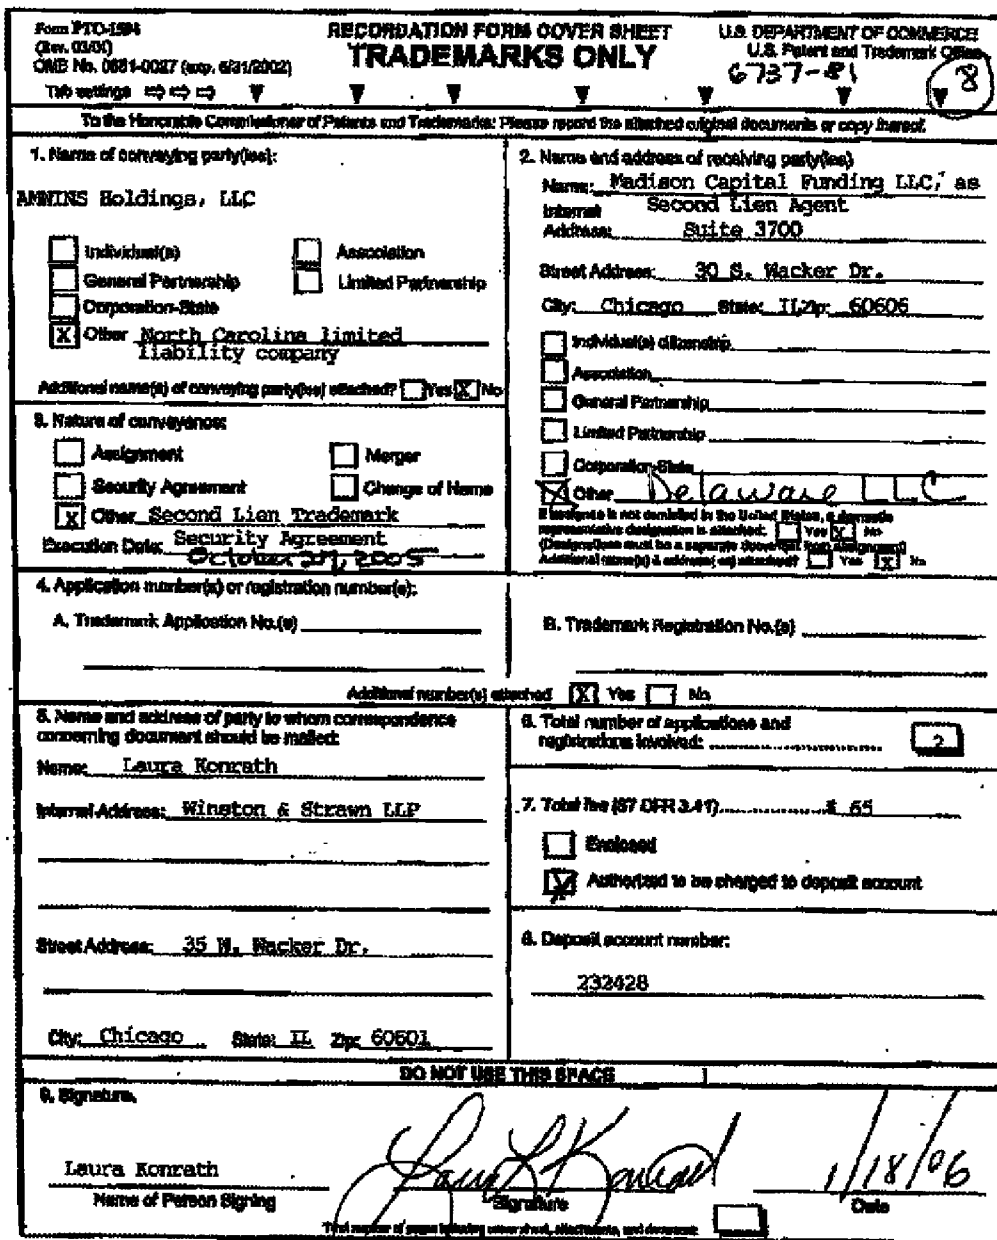 Form PTO-1594
(Rev. 03/01)
OMB No. 0651-0027 (exp. 5/31/2002)
Tab settings
RECORDATION FORM COVER SHEET
TRADEMARKS ONLY
U.S. DEPARTMENT OF COMMERCE
U.S. Patent and Trademark Office
6737-81
8
To the Honorable Commissioner of Patents and Trademarks: Please record the attached original documents or copy thereof.
1. Name of conveying party(ies):
AMWINS Holdings, LLC
Individual(s)
Association
General Partnership
Limited Partnership
Corporation-State
X Other North Carolina limited
liability company
Additional name(s) of conveying party(ies) attached? Yes X No
2. Name and address of receiving party(ies)
Name: Madison Capital Funding LLC, as
Second Lien Agent
Internal
Address: Suite 3700
Street Address: 30 S. Wacker Dr.
City: Chicago State: IL Zip: 60606
Individual(s) citizenship
Association
General Partnership
Limited Partnership
Corporation-State
X Other Delaware LLC
If assignee is not domiciled in the United States, a domestic
representative designation is attached: Yes X No
(Designations must be a separate document from assignment)
Additional name(s) & address(es) attached? Yes X No
3. Nature of conveyance:
Assignment
Merger
Security Agreement
Change of Name
X Other Second Lien Trademark
Security Agreement
Execution Date: October 2005
4. Application number(s) or registration number(s):
A. Trademark Application No.(s)
B. Trademark Registration No.(s)
Additional number(s) attached X Yes No
5. Name and address of party to whom correspondence
concerning document should be mailed:
Name: Laura Konrath
Internal Address: Winston & Strawn LLP
Street Address: 35 W. Wacker Dr.
City: Chicago State: IL Zip: 60601
6. Total number of applications and
registrations involved: 2
7. Total fee (37 CFR 3.41) $ 65
Enclosed
X Authorized to be charged to deposit account
8. Deposit account number:
232428
DO NOT USE THIS SPACE
9. Signature.
Laura Konrath
Name of Person Signing
Laura L Konrath
Signature
1/18/06
Date
Total number of pages including cover sheet, attachments, and document: